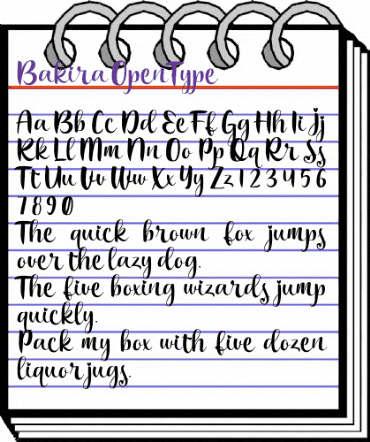 Bakira OpenType
Aa Bb Cc Dd Ee Ff Gg Hh Ii Jj
Kk Ll Mm Nn Oo Pp Qq Rr Ss
Tt Uu Vv Ww Xx Yy Zz 1 2 3 4 5 6
7 8 9 0
The quick brown fox jumps
over the lazy dog.
The five boxing wizards jump
quickly.
Pack my box with five dozen
liquor jugs.